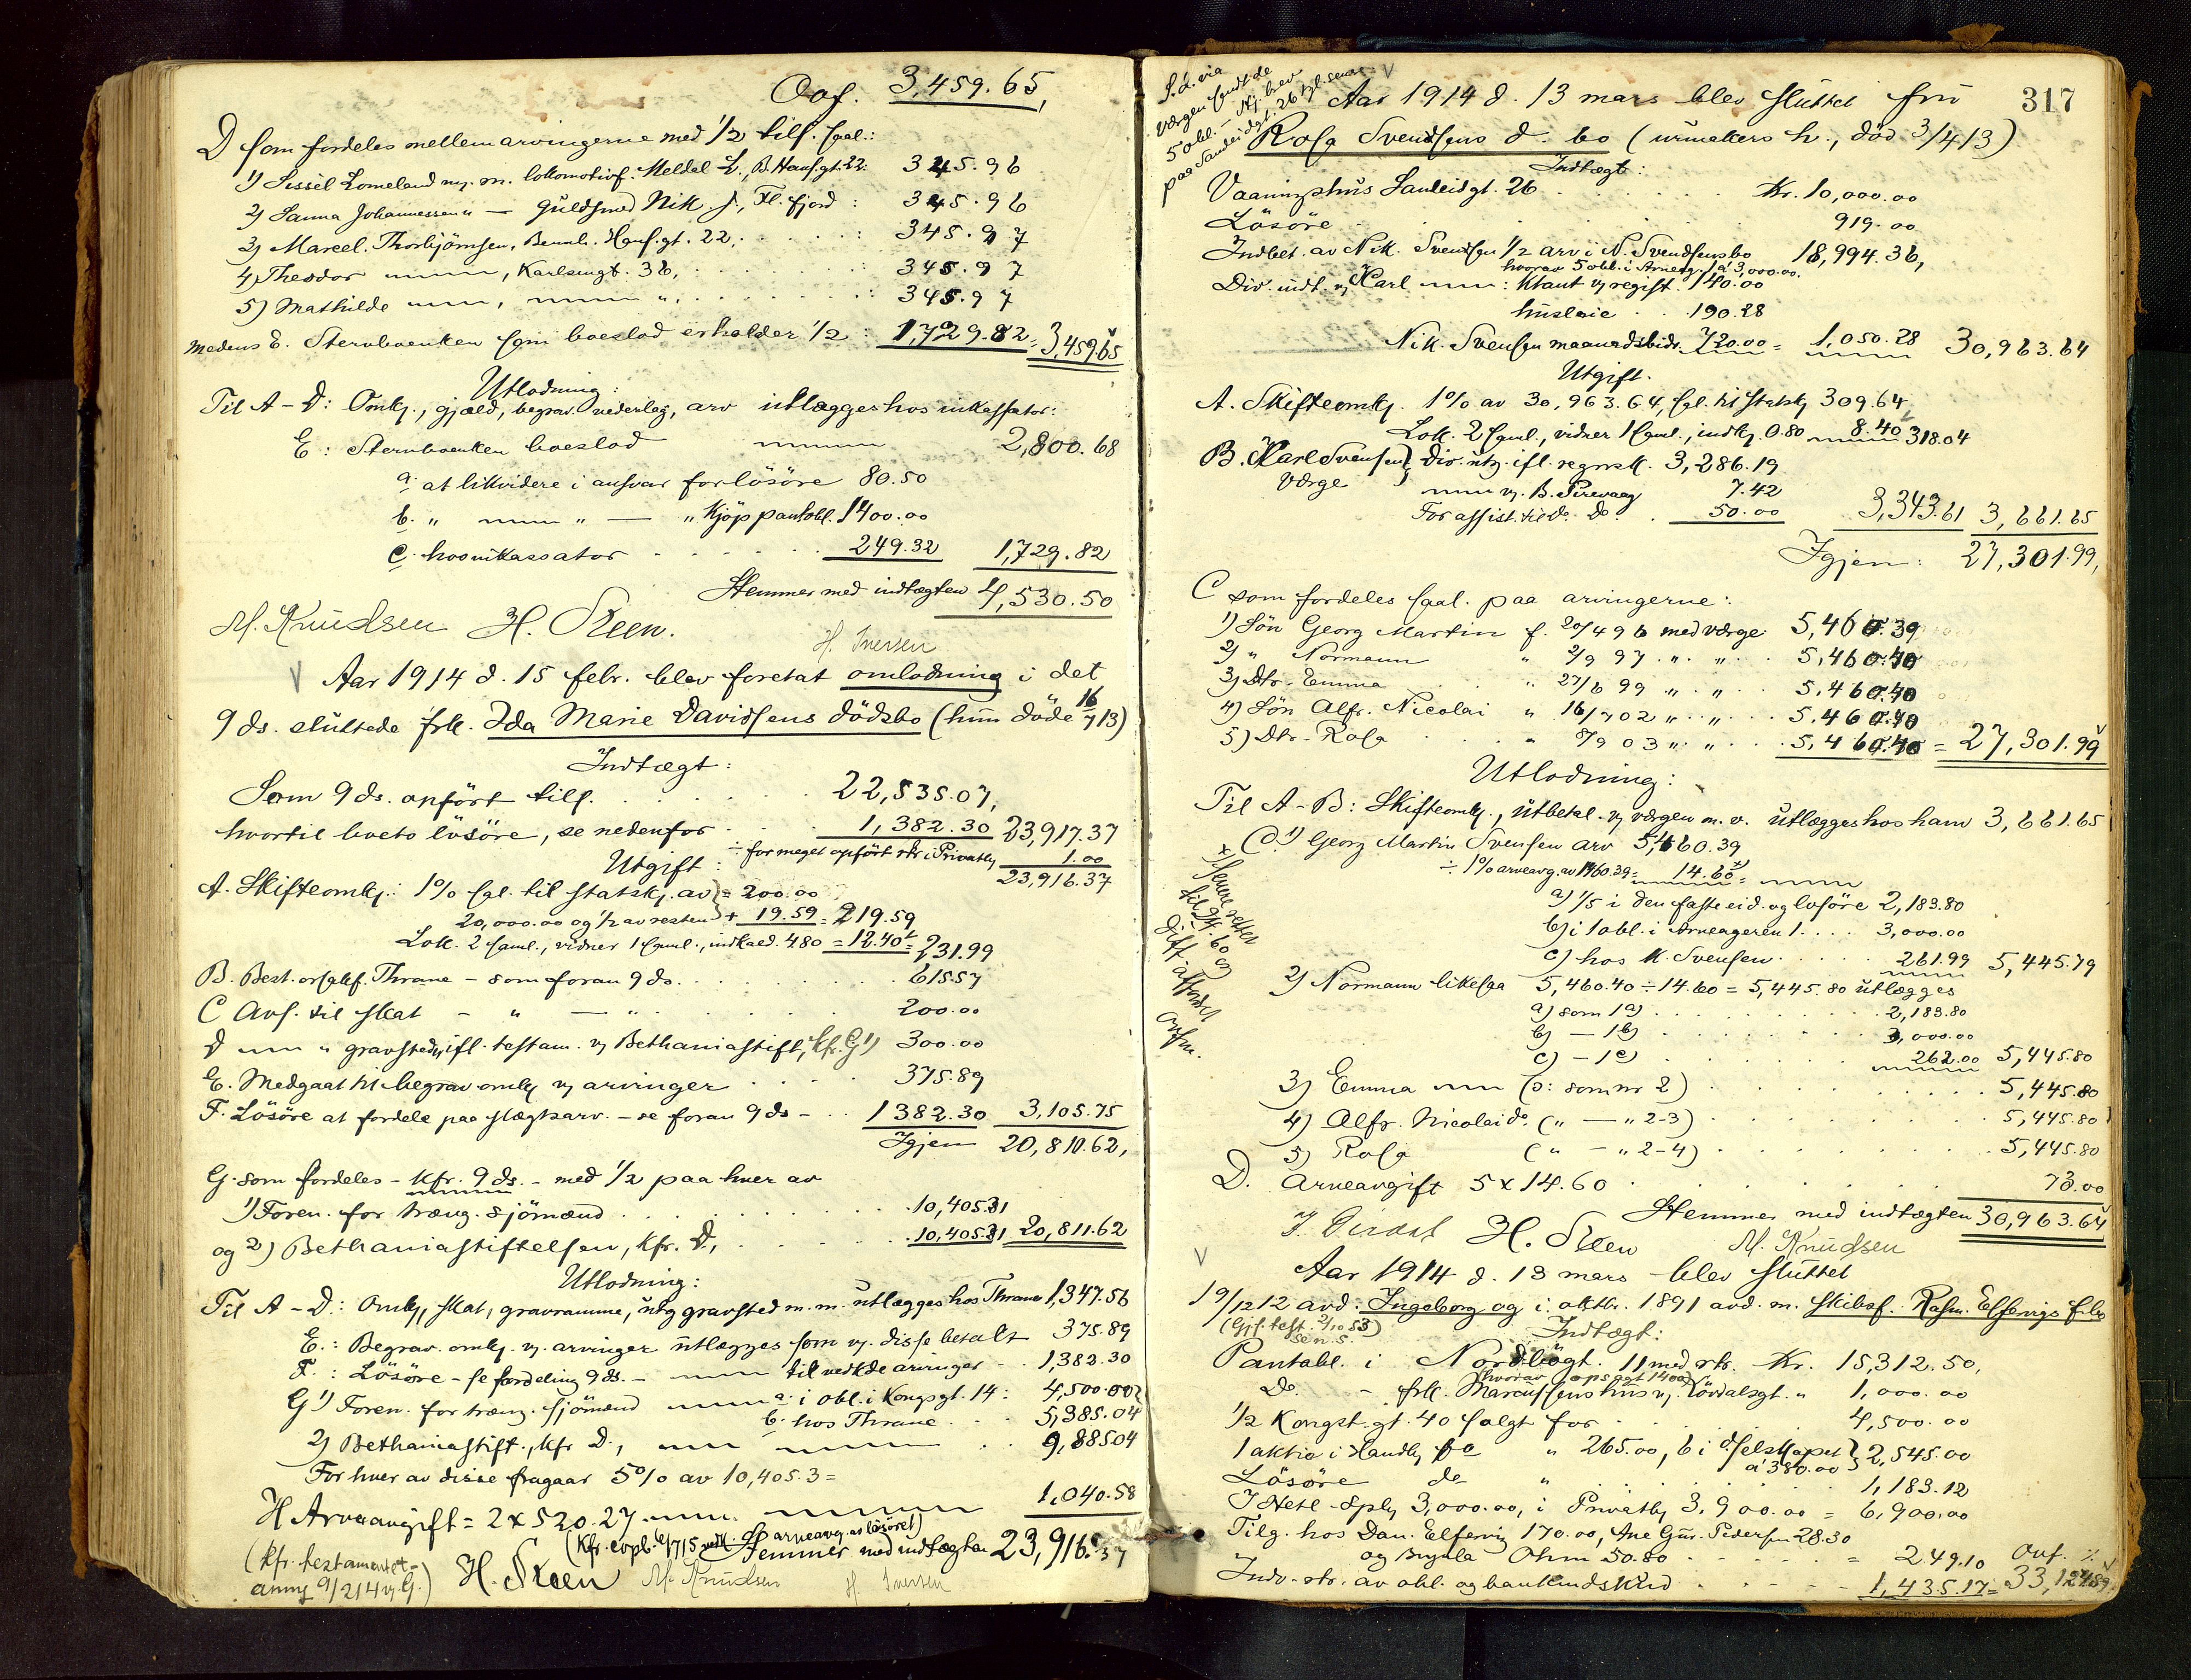 Ovf. 3,459.65,
D som fordeles mellem arvingerne med 1/2 tils. saal.:
1) Sissel Lomeland m. lokomotivf. Meldal L., B. Hansgt. 22: 345.96
2) Sanna Johannessen " — guldsmed Nik. J., Fl. fjord : 345.96
3) Marcel. Thorbjörnsen, Bernh. Hansgt. 22, : 345.97
4) Theodor , Karlsmgt. 36, : 345.97
5) Mathilde , " : 345.97
Medens E. Stervboenken som boeslod erholder 1/2 : 1,729.82 = 3,459.65
Utlodning:
Til A-D: Omk., gjæld, begrav. vederlag, arv utlægges hos inkassator:
E: Stervboenken boeslod 2,800.68
a. at likvidere i ansvar for lösöre 80.50
b. " " — " Kjöp pantobl. 1400.00
c. hos inkassator 249.32 1,729.82
Stemmer med indtægten 4,530.50
M. Knudsen H. Steen. H. Iversen
Aar 1914 d. 15 febr. blev foretat omlodning i det
9 ds. sluttede frk. Ida Marie Davidsens dödsbo (hun döde 16/7 13)
Indtægt:
Som 9 ds. opfört tils. 22,535.07,
hvortil boets lösöre, se nedenfor 1,382.30 23,917.37
÷ for meget opfört rtr i Privatbk 1.00
Utgift: 23,916.37
A. Skifteomk.: 1% sgl. til statsk. av = 200.00
20,000.00 og 1/2 av resten + 19.59 = 219.59
Lok. 2 saml., vidner 1 saml., indkald. 4.80 = 12.40 = 231.99
B. Best. orsgkf. Thrane - som foran 9 ds. 615.57
C Avs. til skat - " — " 200.00
D " gravsted ifl. testam. v. Bethaniastift., kfr. G1) 300.00
E. Medgaat til begrav. omk. v. arvinger 375.89
F. Lösöre at fordele paa slægtsarv. - se foran 9 ds - 1382.30 3,105.75
Igjen 20,810.62,
G. som fordeles - kfr. 9 ds. - med 1/2 paa hver av
1) Foren. for træng. sjömænd 10,405.31
og 2) Bethaniastiftelsen, kfr. D, 10,405.31 20,811.62
Utlodning:
Til A-D: Omk., skat, gravramme, utg gravsted m.m. utlægges hos Thrane 1,347.56
E.: Begrav. omk. v. arvinger utlægges som v. disse betalt 375.89
F.: Lösöre - se fordeling 9 ds. - til vedkde arvinger 1,382.30
G 1) Foren. for træng. sjömænd a. i obl. i Kongsgt. 14: 4,500.00
b. hos Thrane 5,385.04
2) Bethaniastift., kfr D., 9,885.04
For hver av disse fragaar 5% av 10,405.3=
H Arveavgift = 2 x 520.27 1,040.58
(Kfr. arveavg. av lösöret)
Stemmer med indtægten 23,916.37
(kfr. testamentet 9/2 14 v. G.) H. Steen M. Knudsen H. Iversen
317
Aar 1914 d. 13 mars blev sluttet fru
Rosa Svendsens d. bo (urmakers h., död 3/4 13)
Indtægt:
Vaaningshus Sandeidgt. 26 Kr. 10,000.00
Lösöre 919.00
Indbet. av Nik. Svendsen 1/2 arv i N. Svendsens bo 18,994.36,
hvorav 5 obl. i Arneag. 1 à 3,000.00.
Div. indt. v. Karl : Kont. v. regist. 140.00
husleie 190.28
Nik. Svensen maanedsbidr. 720.00 = 1,050.28 30,963.64
Utgift.
A. Skifteomk. 1% av 30,963.64, sgl. til statsk 309.64
Lok. 2 saml., vidner 1 saml., indk. 0.80 8.40 318.04
B. Karl Svensen, Div. utg. ifl. regnsk. 3,286.19
Værge v. B. Pirevaag 7.42
For assist. til do. Do. 50.00 3,343.61 3,661.65
Igjen: 27,301.99,
C som fordeles saal. paa arvingerne:
1) Sön Georg Martin f. 20/4 96 med værge 5,460.39
2) " Normann " 2/9 97 " " 5,460.40
3) Dtr. Emma " 27/6 99 " " 5,460.40
4) Sön Alfr. Nicolai " 16/7 02 " " 5,460.40
5) Dtr. Rosa " 8/9 03 " " 5,460.40 = 27,301.99
Utlodning:
Til A-B: Skifteomk., utbetal. v. værgen m.v. utlægges hos ham 3,661.65
C. 1) Georg Martin Svensen arv 5,460.39
÷ 1% arveavg. av 1460.39 = 14.60 =
a) 1/5 i den faste eid. og lösöre 2,183.80
b) i 1 obl. i Arneageren 1 3,000.00
c) hos K. Svensen 261.99 5,445.79
2) Normann likesaa 5,460.40 ÷ 14.60 = 5,445.80 utlægges
a) som 1a) 2,183.80
b) — 1b) 3,000.00
c) — 1c) 262.00 5,445.80
3) Emma (o: som nr 2) 5,445.80
4) Alfr. Nicolai do. (" — " 2-3) 5,445.80
5) Rosa (" — " 2-4) 5,445.80
D. Arveavgift 5 x 14.60 73.00
Stemmer med indtægten 30,963.64
H. Steen M. Knudsen
Aar 1914 d. 13 mars - blev sluttet
19/12 12 avd. Ingeborg og i oktbr. 1891 avd. m. skibsf. Rasm. Elfvings flb
(Gjs. test. 2/10 53)
Indtægt:
Pantobl. i Nordbögt. 11 med rtr. Kr. 15,312.50,
Do. - frk. Marcussens hus v. Lövdalsgt. " 1,000.00
1/2 Kongst. gt. 40 solgt for 4,500.00
1 aktie i Handbk fo " 265.00, 6 i d/selskapet à 380.00 2,545.00
Lösöre do " 1,183.12
I Hetl. Spbk 3,000.00, i Privatbk 3,900.00 = 6,900.00
Tilg. hos Dan. Elfving 170.00, Ane Gur. Pedersen 28.30
og Brynla Ohm 50.80 = 249.10 Ovf. ⁒
Indv. rtr. av obl. og bankindskud 1,435.17 =